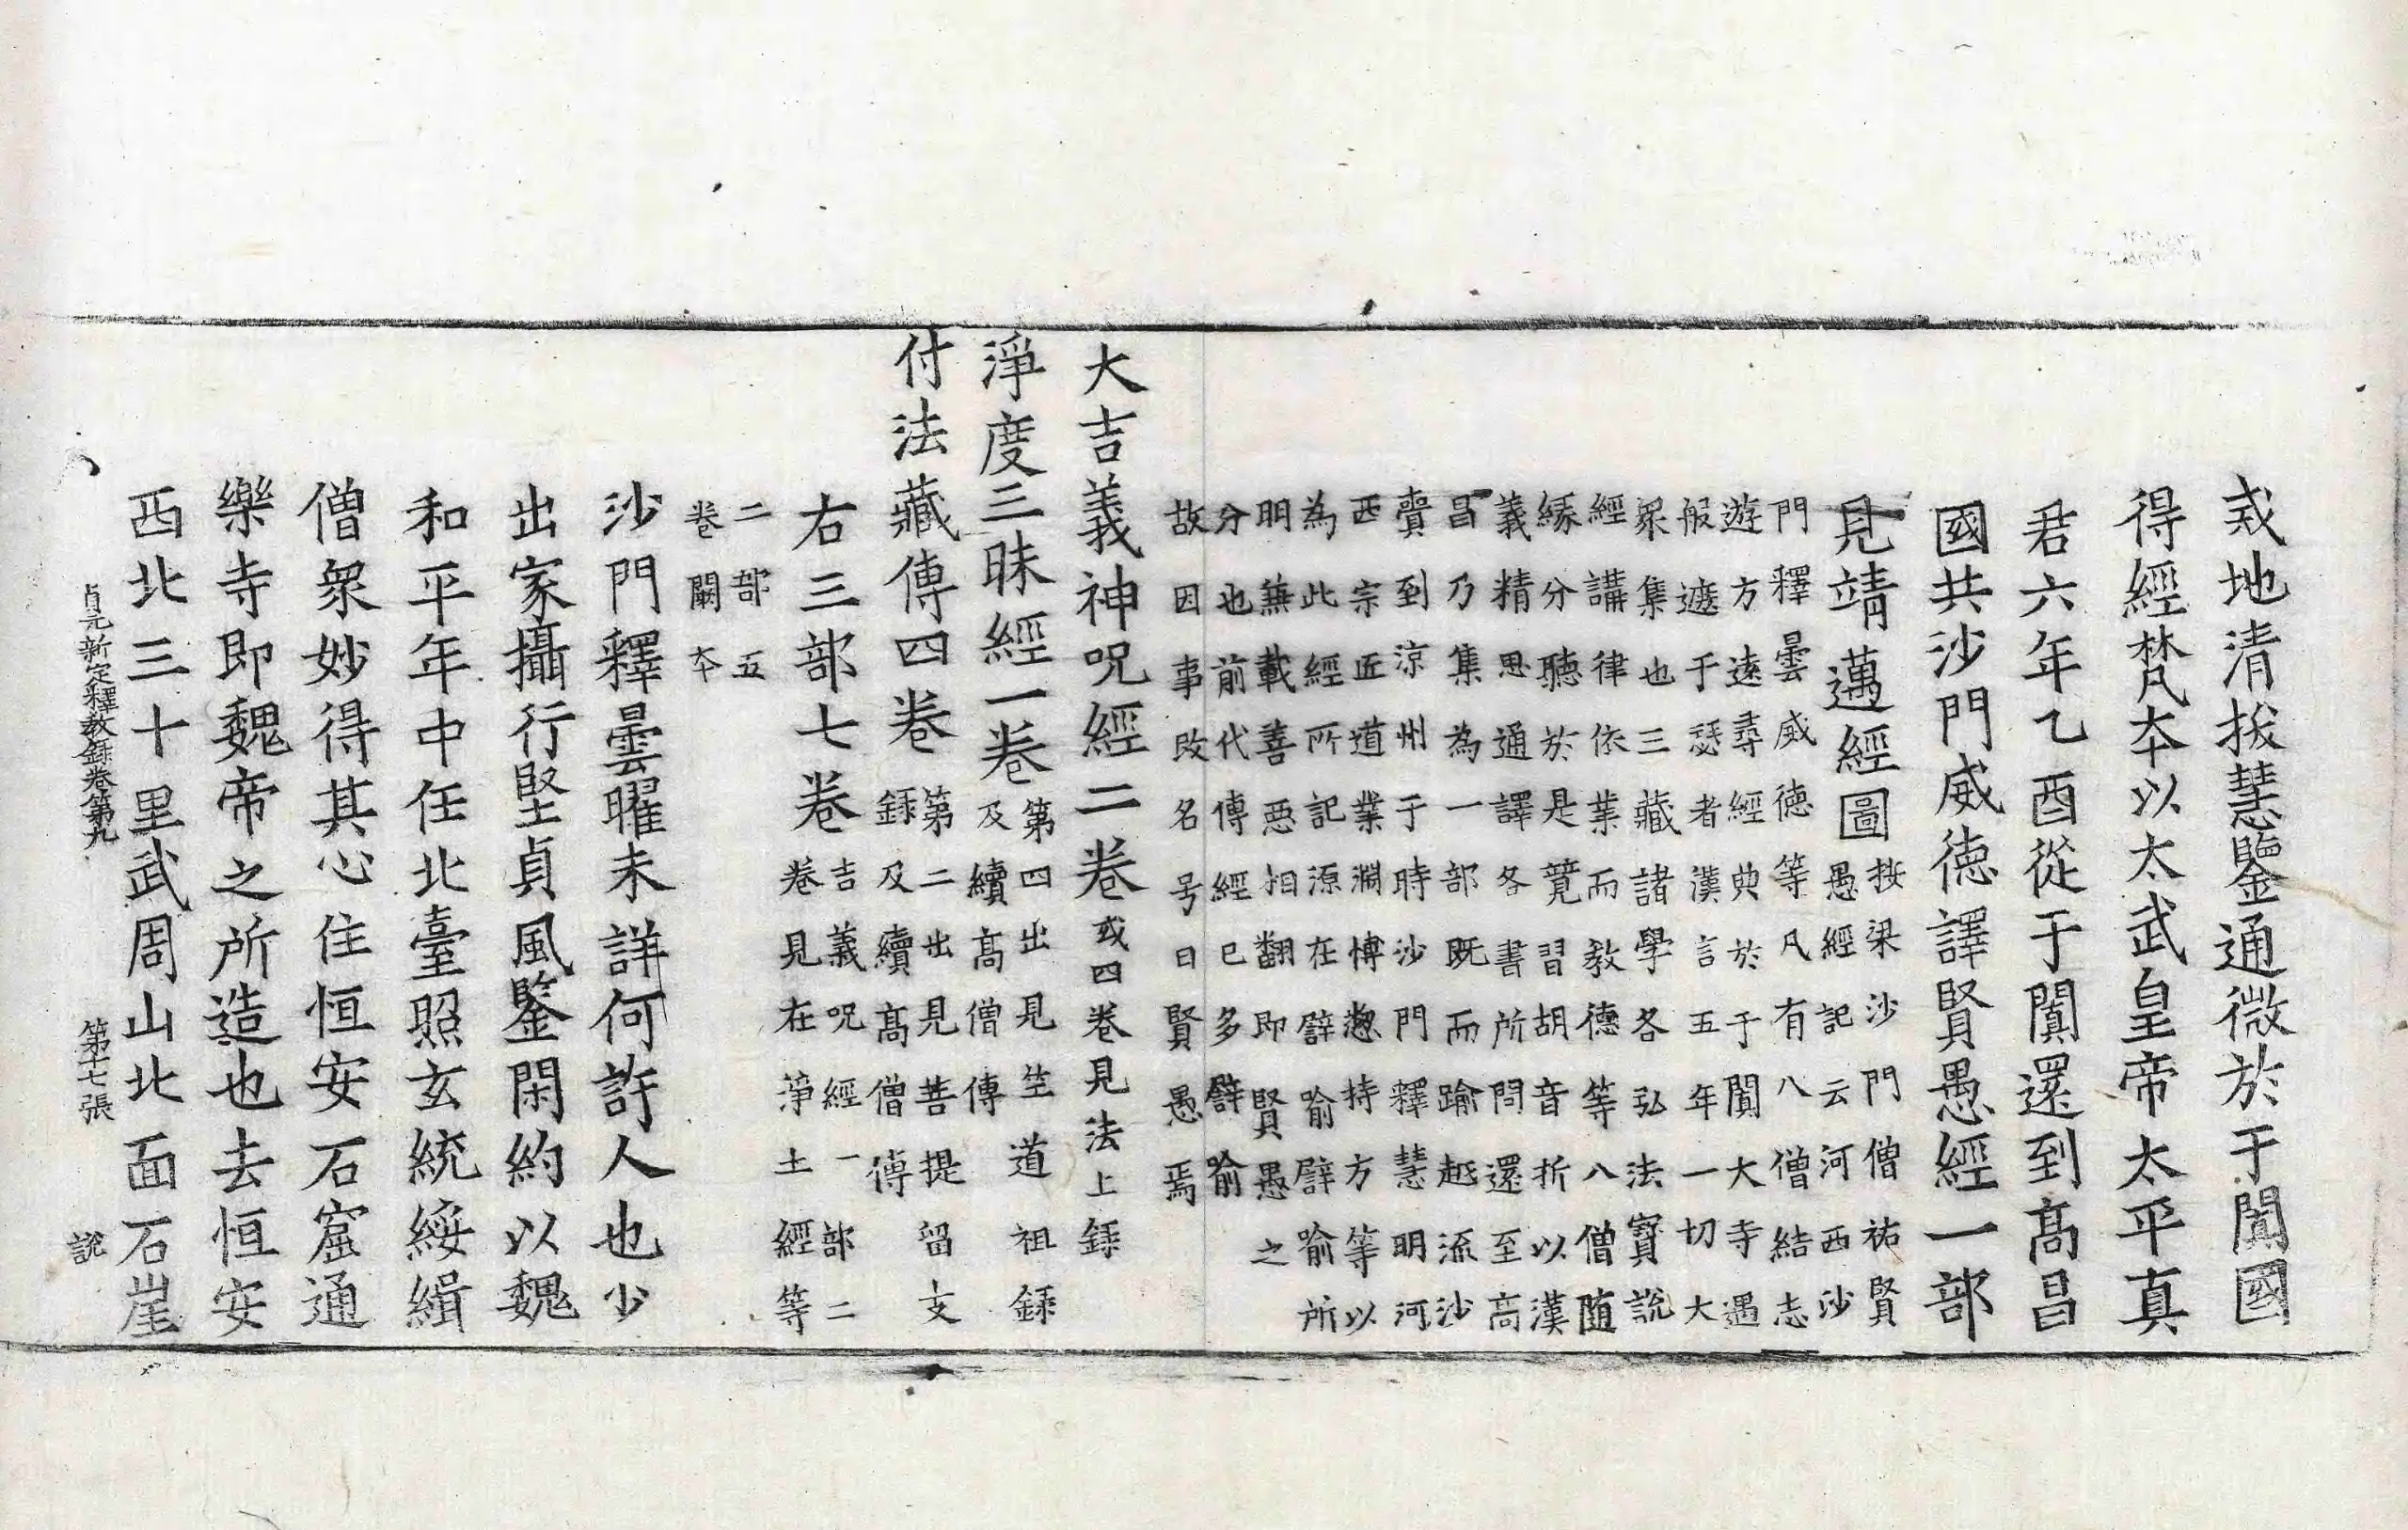 或地清拔慧鑒通微於于闐國
得經梵夲以太武皇帝太平真
君六年乙酉從于闐還到髙昌
國共沙門威徳譯賢愚經一部
見靖邁經圖
按梁沙門僧祐賢
愚經記云河西沙
門釋曇威徳等凡有八僧結志
遊方遠尋經典於于闐大寺遇
般遮于瑟者漢言五年一切大
衆集也三藏諸學各弘法寳說
經講律依業而教德等八僧随
緣分聽於是競習胡音折以漢
義精思通譯各書所問還至髙
昌乃集為一部既而踰越流沙
賷到涼州于時沙門釋慧明河
西宗匠道業淵博揔持方等以
為此經所記源在譬喻譬喻所
明兼載善惡相翻即賢愚之
分也前代傳經已多譬喻
故因事改名号曰賢愚焉
大吉義神呪經二卷或四卷見法上録
淨度三昧經一卷
第四出見笁道祖録
及續髙僧傳
付法藏傳四卷
第二出見菩提留支
録及續髙僧傳
右三部七卷
吉義呪經一部二
卷見在淨土經等
二部五
卷闕夲
沙門釋曇曜未詳何許人也少
出家攝行堅貞風鑒閑約以魏
和平年中任北臺照玄統綏緝
僧衆妙得其心住恒安石窟通
樂寺即魏帝之所造也去恒安
西北三十里武周山北面石崖
貞元新定釋教録卷第九 第十七張 說